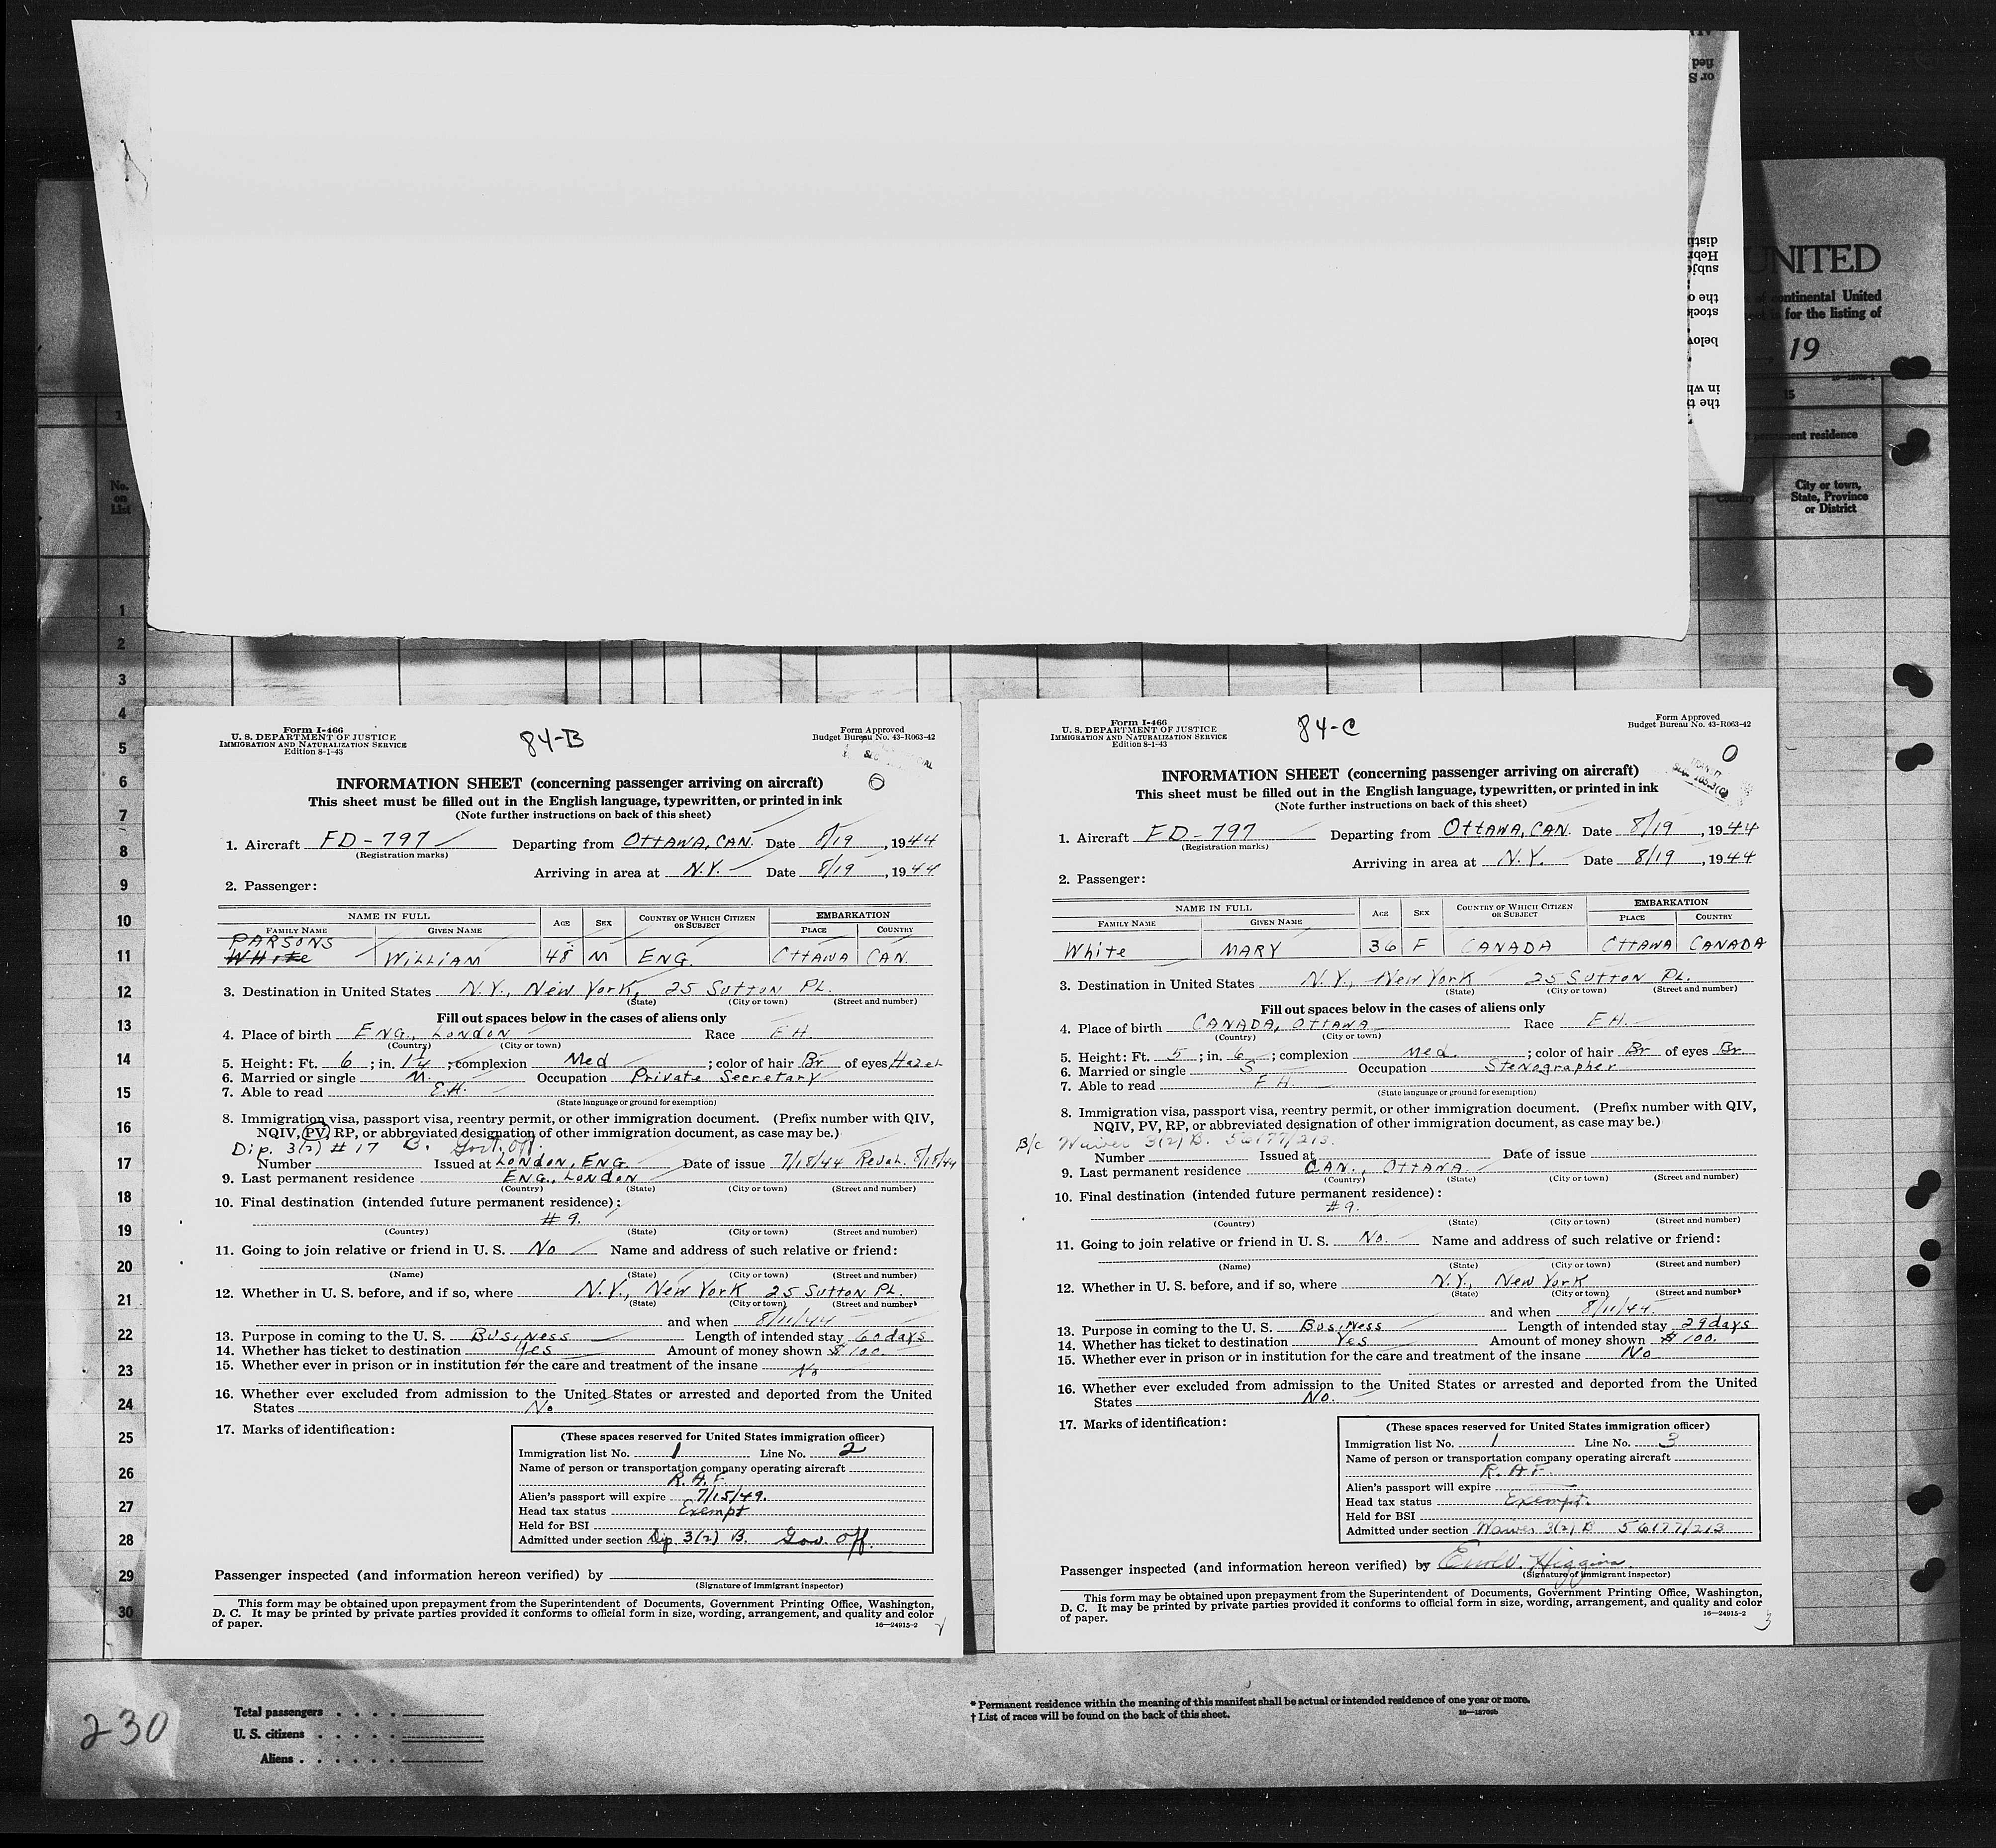 UNITED
continental United
for the listing of
, 19
15
permanent residence
No.
on
List
Country
City or town,
State, Province
or District
1
2
3
4
5
6
7
8
9
10
11
12
13
14
15
16
17
18
19
20
21
22
23
24
25
26
27
28
29
30
Form I-466
U. S. DEPARTMENT OF JUSTICE
IMMIGRATION AND NATURALIZATION SERVICE
Edition 8-1-43
84-B
Form Approved
Budget Bureau No. 43-R063-42
INFORMATION SHEET (concerning passenger arriving on aircraft)
This sheet must be filled out in the English language, typewritten, or printed in ink
(Note further instructions on back of this sheet)
1. Aircraft FD-797 Departing from OTTAWA, CAN. Date 8/19, 1944
(Registration marks)
Arriving in area at N.Y. Date 8/19, 1944
2. Passenger:
NAME IN FULL AGE SEX COUNTRY OF WHICH CITIZEN OR SUBJECT EMBARKATION
FAMILY NAME GIVEN NAME PLACE COUNTRY
PARSONS
White WILLIAM 48 M ENG. OTTAWA CAN.
3. Destination in United States N.Y., New York, 25 Sutton PL.
(State) (City or town) (Street and number)
Fill out spaces below in the cases of aliens only
4. Place of birth ENG., LONDON Race EH
(Country) (City or town)
5. Height: Ft. 6; in. 1/4; complexion Med; color of hair Br of eyes Hazel
6. Married or single M. Occupation Private Secretary
7. Able to read EH.
(State language or ground for exemption)
8. Immigration visa, passport visa, reentry permit, or other immigration document. (Prefix number with QIV,
NQIV, PV, RP, or abbreviated designation of other immigration document, as case may be.)
Dip. 3(2) # 17 B. Govt. Off.
Number Issued at LONDON, ENG. Date of issue 7/18/44 Reval. 8/18/44
9. Last permanent residence ENG., LONDON
(Country) (State) (City or town) (Street and number)
10. Final destination (intended future permanent residence):
# 9.
(Country) (State) (City or town) (Street and number)
11. Going to join relative or friend in U. S. No Name and address of such relative or friend:
(Name) (State) (City or town) (Street and number)
12. Whether in U. S. before, and if so, where N.Y., New York 25 Sutton PL.
(State) (City or town) (Street and number)
and when 8/11/44
13. Purpose in coming to the U. S. Business Length of intended stay 60 days
14. Whether has ticket to destination Yes Amount of money shown $100.
15. Whether ever in prison or in institution for the care and treatment of the insane No
16. Whether ever excluded from admission to the United States or arrested and deported from the United
States No
17. Marks of identification:
(These spaces reserved for United States immigration officer)
Immigration list No. 1 Line No. 2
Name of person or transportation company operating aircraft
R.A.F.
Alien's passport will expire 7/15/49.
Head tax status Exempt
Held for BSI
Admitted under section Dip 3(2) B. Gov. Off.
Passenger inspected (and information hereon verified) by
(Signature of immigrant inspector)
This form may be obtained upon prepayment from the Superintendent of Documents, Government Printing Office, Washington,
D. C. It may be printed by private parties provided it conforms to official form in size, wording, arrangement, and quality and color
of paper.
16—24915-2
Form I-466
U. S. DEPARTMENT OF JUSTICE
IMMIGRATION AND NATURALIZATION SERVICE
Edition 8-1-43
84-C
Form Approved
Budget Bureau No. 43-R063-42
INFORMATION SHEET (concerning passenger arriving on aircraft)
This sheet must be filled out in the English language, typewritten, or printed in ink
(Note further instructions on back of this sheet)
1. Aircraft FD-797 Departing from OTTAWA, CAN. Date 8/19, 1944
(Registration marks)
Arriving in area at N.Y. Date 8/19, 1944
2. Passenger:
NAME IN FULL AGE SEX COUNTRY OF WHICH CITIZEN OR SUBJECT EMBARKATION
FAMILY NAME GIVEN NAME PLACE COUNTRY
White MARY 36 F CANADA OTTAWA CANADA
3. Destination in United States N.Y., New York 25 Sutton PL.
(State) (City or town) (Street and number)
Fill out spaces below in the cases of aliens only
4. Place of birth CANADA, OTTAWA Race EH.
(Country) (City or town)
5. Height: Ft. 5; in. 6; complexion med.; color of hair Br of eyes Br.
6. Married or single S Occupation Stenographer
7. Able to read EH.
(State language or ground for exemption)
8. Immigration visa, passport visa, reentry permit, or other immigration document. (Prefix number with QIV,
NQIV, PV, RP, or abbreviated designation of other immigration document, as case may be.)
B/c Waiver 3(2) B. 56177/213.
Number Issued at Date of issue
9. Last permanent residence CAN., OTTAWA.
(Country) (State) (City or town) (Street and number)
10. Final destination (intended future permanent residence):
# 9.
(Country) (State) (City or town) (Street and number)
11. Going to join relative or friend in U. S. No. Name and address of such relative or friend:
(Name) (State) (City or town) (Street and number)
12. Whether in U. S. before, and if so, where N.Y., New York
(State) (City or town) (Street and number)
and when 8/11/44.
13. Purpose in coming to the U. S. Business Length of intended stay 29 days
14. Whether has ticket to destination Yes Amount of money shown $100.
15. Whether ever in prison or in institution for the care and treatment of the insane No
16. Whether ever excluded from admission to the United States or arrested and deported from the United
States No.
17. Marks of identification:
(These spaces reserved for United States immigration officer)
Immigration list No. 1 Line No. 3
Name of person or transportation company operating aircraft
R.A.F.
Alien's passport will expire
Head tax status Exempt.
Held for BSI
Admitted under section Waiver 3(2) B 56177/213
Passenger inspected (and information hereon verified) by Higgins
(Signature of immigrant inspector)
This form may be obtained upon prepayment from the Superintendent of Documents, Government Printing Office, Washington,
D. C. It may be printed by private parties provided it conforms to official form in size, wording, arrangement, and quality and color
of paper.
16—24915-2
3
230
Total passengers
U. S. citizens
Aliens
* Permanent residence within the meaning of this manifest shall be actual or intended residence of one year or more.
† List of races will be found on the back of this sheet.